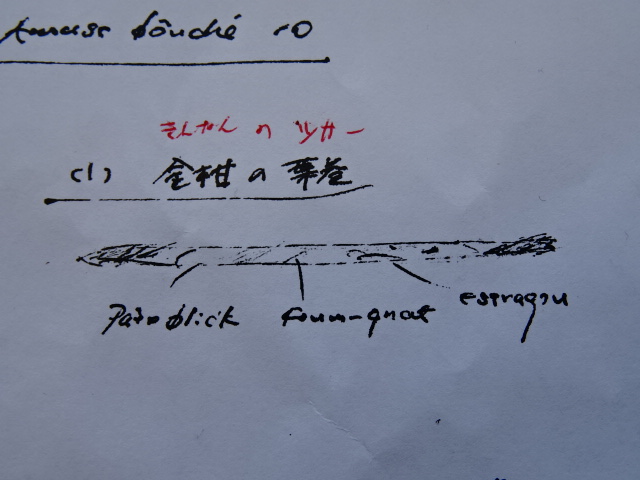 Amuse bouché
きんかんの
(1) 金柑の葉巻
Pate blick coum-quat esstragou